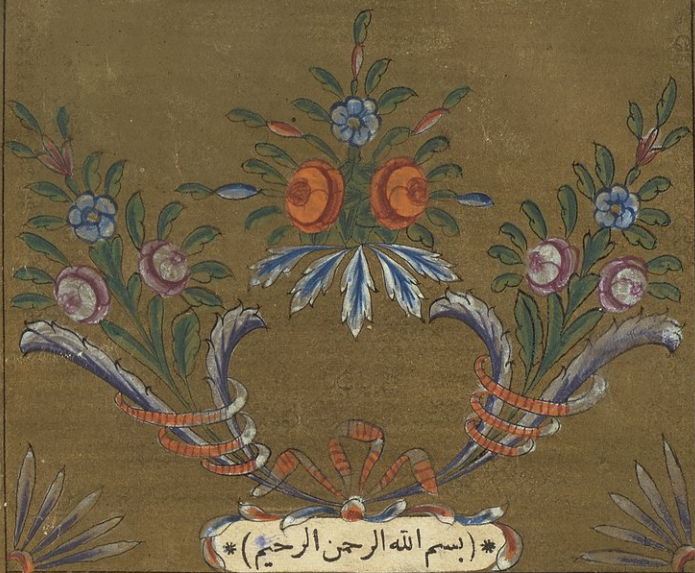 * (بسم الله الرحمن الرحيم) *